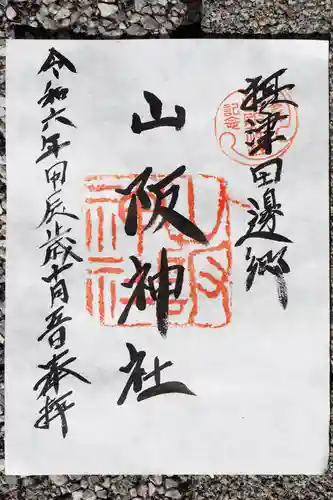 摂津田邊郷
山阪神社
令和六年甲辰歳十月五日奉拝
山阪神社